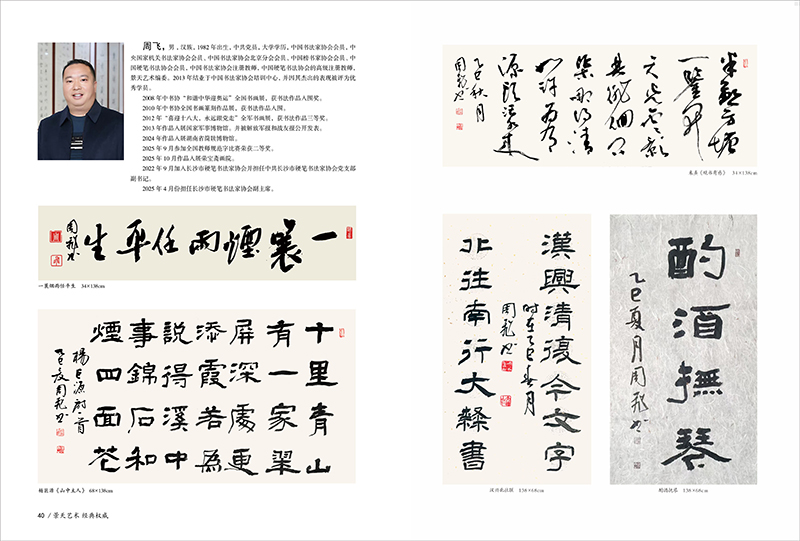 周飞，男，汉族，1982年出生，中共党员，大学学历，中国书法家协会会员，中
央国家机关书法家协会会员、中国书法家协会北京分会会员、中国楷书家协会会员、中
国硬笔书法协会会员、中国书法家协会注册教师、中国硬笔书法协会的高级注册教师，
景天艺术编委。2013年结业于中国书法家协会培训中心，并因其杰出的表现被评为优
秀学员。
2008年中书协“和谐中华迎奥运”全国书画展，获书法作品入围奖。
2010年中书协全国书画篆刻作品展，获书法作品入围。
2012年“喜迎十八大，永远跟党走”全军书画展，获书法作品三等奖。
2013年作品入展国家军事博物馆，并被解放军报和战友报公开发表。
2024年作品入展湖南省简筑博物馆。
2025年9月参加全国教师规范字比赛荣获二等奖。
2025年10月作品入展荣宝斋画院。
2022年9月加入长沙市硬笔书法家协会并担任中共长沙市硬笔书法家协会党支部
副书记。
2025年4月份担任长沙市硬笔书法家协会副主席。
一蓑煙雨任平生
周飛书
一蓑烟雨任平生 34×138cm
十里青山
有一家翠
屏深處更
添霞若為
說得溪中
事錦石和
煙四面花
楊巨源尉前
乙巳夏周飛书
杨巨源《山中主人》 68×138cm
40 / 景天艺术 经典权威
半畝方塘
一鑒開
天光雲影
共徘徊問
渠那得清
如許為有
源頭活水來
乙巳秋月
周飛书
朱熹《观书有感》 34×138cm
漢興清復今文字
北往南行大隸書
时在乙巳春月
周飛书
138×68cm
酌酒撫琴
乙巳夏月周飛书
酌酒抚琴 138×68cm